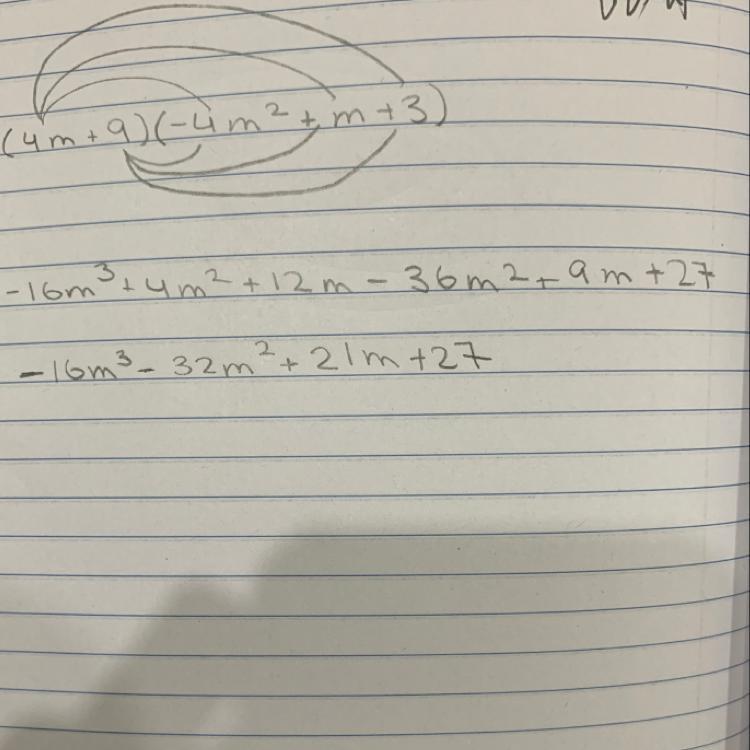 (4m+9)(-4m²+m+3)
-16m³+4m²+12m-36m²+9m+27
-16m³-32m²+21m+27